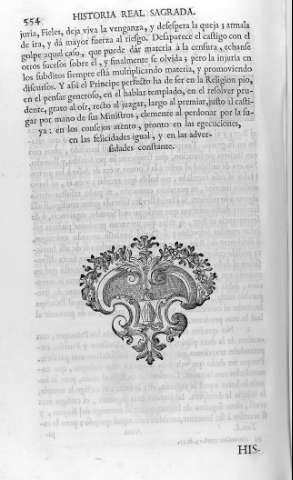 554 HISTORIA REAL SAGRADA.
juria, Fieles, deja viva la venganza, y desespera la queja; armala
de ira, y dà mayor fuerza al riesgo. Desaparece el castigo con el
golpe aquel caso, que puede dàr materia à la censura, echanse
otros sucesos sobre èl, y finalmente se olvida; pero la injuria en
los subditos siempre està multiplicando materia, y promoviendo
discursos. Y assi el Principe perfecto ha de ser en la Religion pio,
en el pensar generoso, en el hablar templado, en el resolver prudente,
grato al oìr, recto al juzgar, largo al premiar, justo al castigar
por mano de sus Ministros, clemente al perdonar por la suya:
en los consejos atento, pronto en las egecuciones,
en las felicidades igual, y en las adversidades
constante.
HIS-